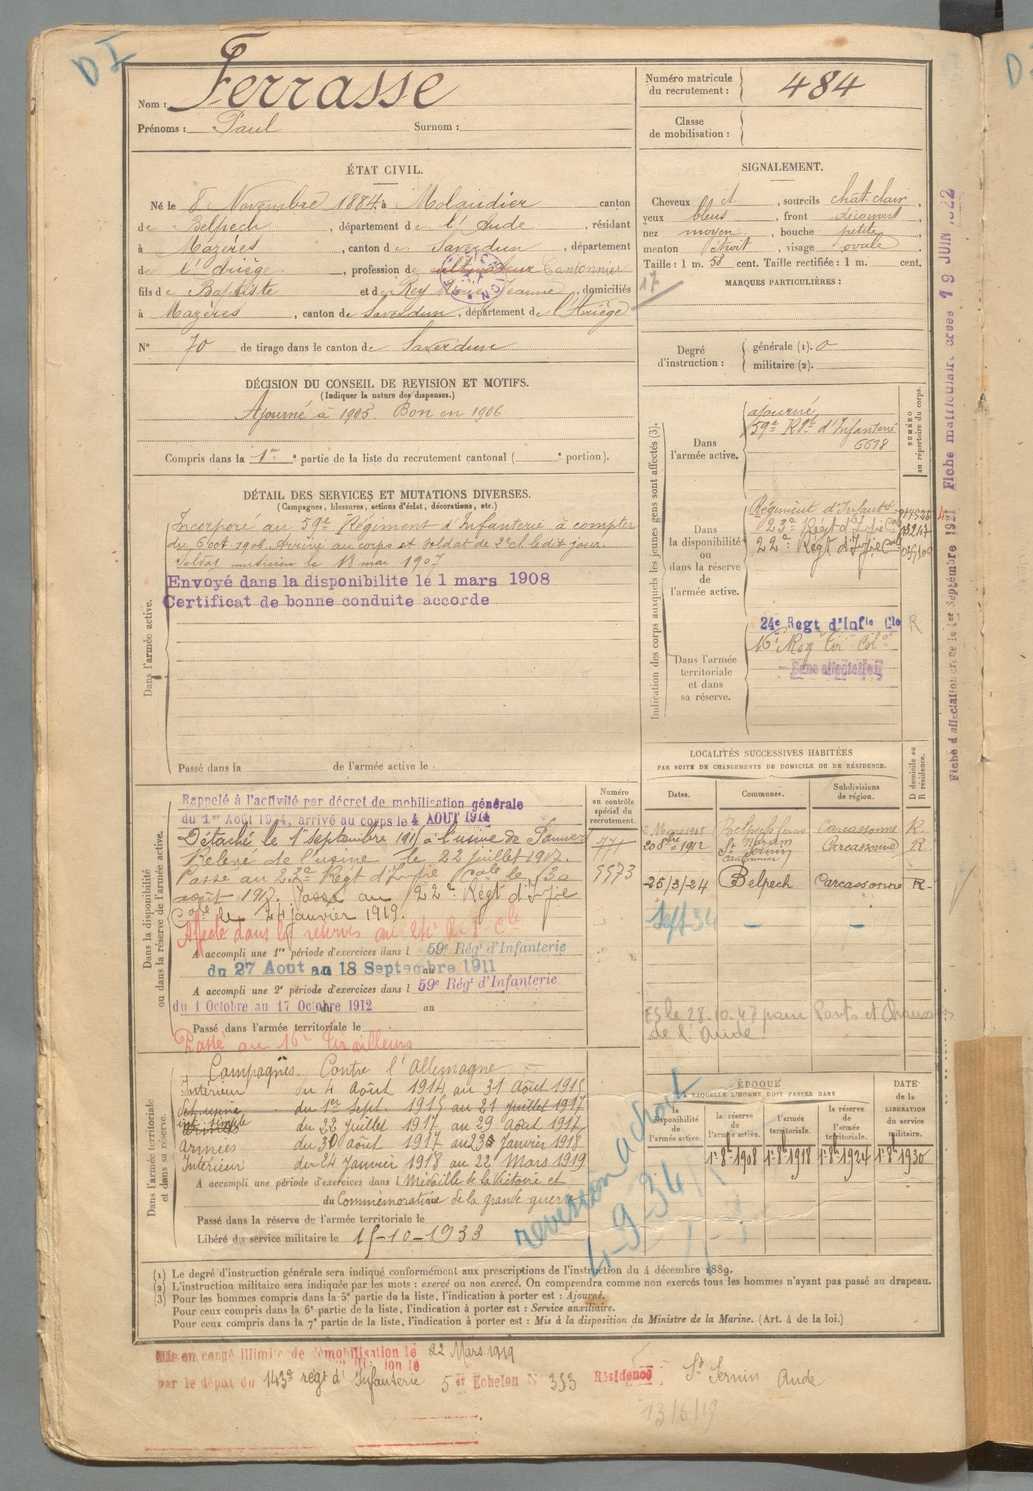 D I
Nom : Ferrasse
Prénoms : Paul Surnom :
Numéro matricule
du recrutement : 484
Classe
de mobilisation :
ÉTAT CIVIL.
Né le 8 Novembre 1884 à Molandier canton
de Belpech, département de l'Aude, résidant
à Mazères, canton de Saverdun, département
de l'Ariège, profession de cultivateur Cantonnier
fils de Baptiste et de Rey Marie Jeanne, domiciliés
à Mazères, canton de Saverdun, département de l'Ariège
N° 70 de tirage dans le canton de Saverdun
SIGNALEMENT.
Cheveux ct, sourcils chât clair
yeux bleus, front découvert
nez moyen, bouche petite
menton étroit, visage ovale
Taille : 1 m. 58 cent. Taille rectifiée : 1 m. cent.
MARQUES PARTICULIÈRES :
17
Degré
d'instruction :
générale (1). 0
militaire (2).
DÉCISION DU CONSEIL DE REVISION ET MOTIFS.
(Indiquer la nature des dispenses.)
Ajourné à 1905 Bon en 1906
Compris dans la 1re partie de la liste du recrutement cantonal ( e portion).
DÉTAIL DES SERVICES ET MUTATIONS DIVERSES.
(Campagnes, blessures, actions d'éclat, décorations, etc.)
Dans l'armée active.
Incorporé au 59e Régiment d'Infanterie à compter
du 6 oct. 1906. Arrivé au corps et soldat de 2e cl le dit jour.
Soldat musicien le 13 mai 1907
Envoyé dans la disponibilite le 1 mars 1908
Certificat de bonne conduite accorde
Passé dans la de l'armée active le
Indication des corps auxquels les jeunes gens sont affectés (3).
NUMÉRO
au répertoire du corps.
Dans
l'armée active.
ajourné
59e Rgt d'Infanterie
6678
Dans
la disponibilité
ou
dans la réserve
de
l'armée active.
Régiment d'Infant
23e Régt d'Ifie Cale
22e Régt d'Ifie Cale
Dans l'armée
territoriale
et dans
sa réserve.
24e Regt d'Infie Cle R
16e Reg Tir Col
Sans affectation
Fiche d'affectation créée le 1er Septembre 1921 Fiche matriculaire créée 19 JUIN 1922
LOCALITÉS SUCCESSIVES HABITÉES
PAR SUITE DE CHANGEMENTS DE DOMICILE OU DE RÉSIDENCE.
Dates. Communes. Subdivisions
de région. D domicile ou
R résidence.
Carcassonne R.
20 8bre 1912 St Sernin cantonnier Carcassonne R
25/3/24 Belpech Carcassonne R.
Sept 34 — —
le 28-10-47 pour Ponts et Chauss
de l'Aude
Dans la disponibilité
ou dans la réserve de l'armée active.
Numéro
au contrôle
spécial du
recrutement.
771
9973
Rappelé à l'activité par décret de mobilisation générale
du 1er Août 1914, arrivé au corps le 4 AOUT 1914
Détaché le 1 septembre 1915 à l'usine de
Relevé de l'usine le 22 juillet 1917.
Passé au 23e Régt d'Ifie Cale le 30
août 1917. Passé au 22e Régt d'Ifie
Cale le 24 janvier 1919.
Affecté dans la réserve au 24e
A accompli une 1re période d'exercices dans l 59e Régt d'Infanterie
du 27 Aout au 18 Septembre 1911
A accompli une 2e période d'exercices dans l 59e Régt d'Infanterie
du 1 Octobre au 17 Octobre 1912 au
Passé dans l'armée territoriale le
Passé au 16e tirailleurs
Dans l'armée territoriale
et dans sa réserve.
Campagnes Contre l'Allemagne
Intérieur du 4 Août 1914 au 31 Août 1915
du 1er Sept. 1915 au 21 juillet 1917
int. simple du 22 juillet 1917 au 29 Août 1917
Armées du 30 août 1917 au 23 janvier 1918
Intérieur du 24 janvier 1918 au 22 Mars 1919
A accompli une période d'exercices dans l Médaille de la Victoire et
du Commémorative de la grande guerre
Passé dans la réserve de l'armée territoriale le
Libéré du service militaire le 15-10-1933
revision
4-9-34
ÉPOQUE
À LAQUELLE L'HOMME DOIT PASSER DANS
DATE
de la
LIBÉRATION
du service
militaire.
la
disponibilité
de
l'armée active.
la réserve
de
l'armée active.
l'armée
territoriale.
la réserve
de l'armée
territoriale.
1er 8bre 1908 1er 8bre 1918 1er 8bre 1924 1er 8bre 1930
(1) Le degré d'instruction générale sera indiqué conformément aux prescriptions de l'instruction du 4 décembre 1889.
(2) L'instruction militaire sera indiquée par les mots : exercé ou non exercé. On comprendra comme non exercés tous les hommes n'ayant pas passé au drapeau.
(3) Pour les hommes compris dans la 5e partie de la liste, l'indication à porter est : Ajourné.
Pour ceux compris dans la 6e partie de la liste, l'indication à porter est : Service auxiliaire.
Pour ceux compris dans la 7e partie de la liste, l'indication à porter est : Mis à la disposition du Ministre de la Marine. (Art. 4 de la loi.)
Mis en congé illimité de démobilisation le 22 Mars 1919
par le dépôt du 143e régt d'Infanterie 5e Echelon N° 353 Résidence St Sernin Aude
13/6/19